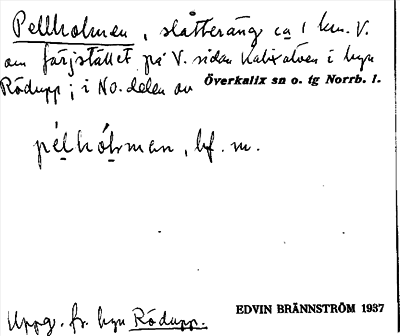 Pellholmen, slåtteräng ca 1 km. V.
om färjstället på V. sidan Kalixälven i byn
Rödupp; i NO. delen av Överkalix sn o. tg Norrb. l.
pélhólman, bf. m.
EDVIN BRÄNNSTRÖM 1937
Uppg. fr. byn Rödupp.